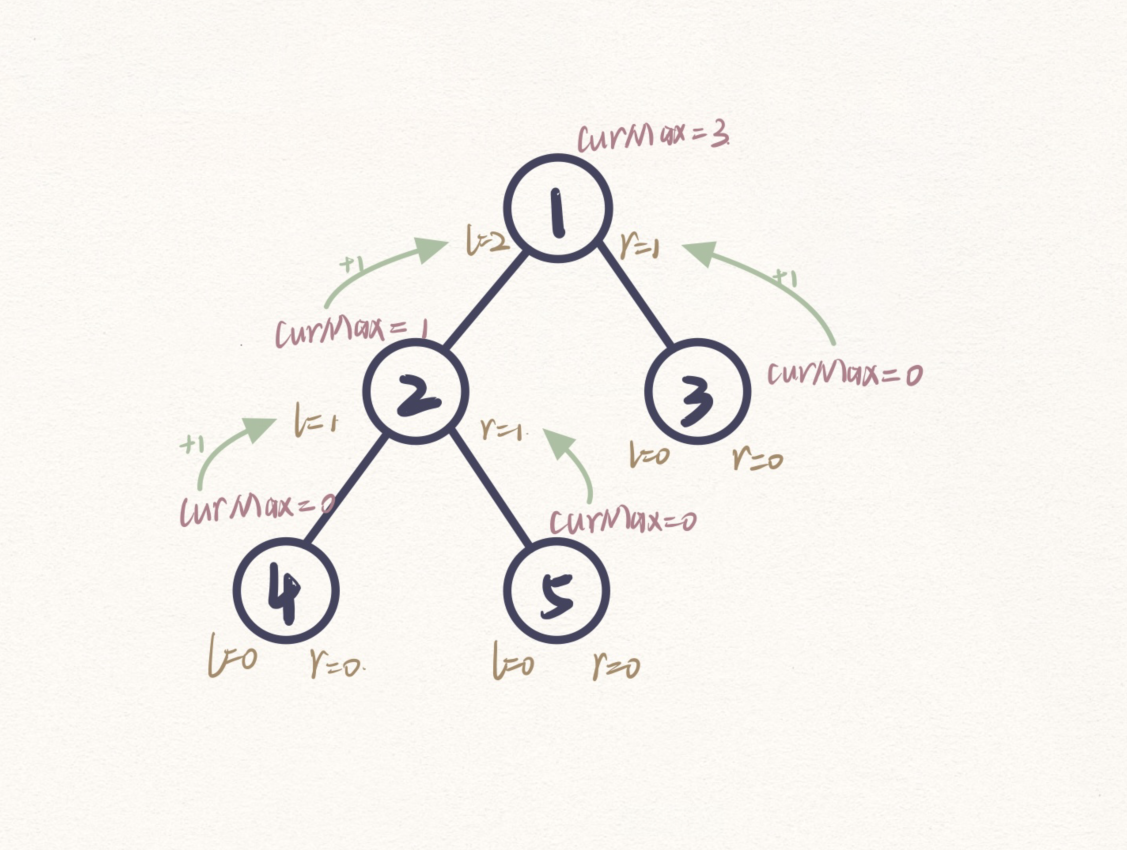 curMax=3
1
l=2
r=1
+1
+1
curMax=1
curMax=0
2
3
l=1
r=1
l=0
r=0
+1
curMax=0
curMax=0
4
5
l=0
r=0
l=0
r=0